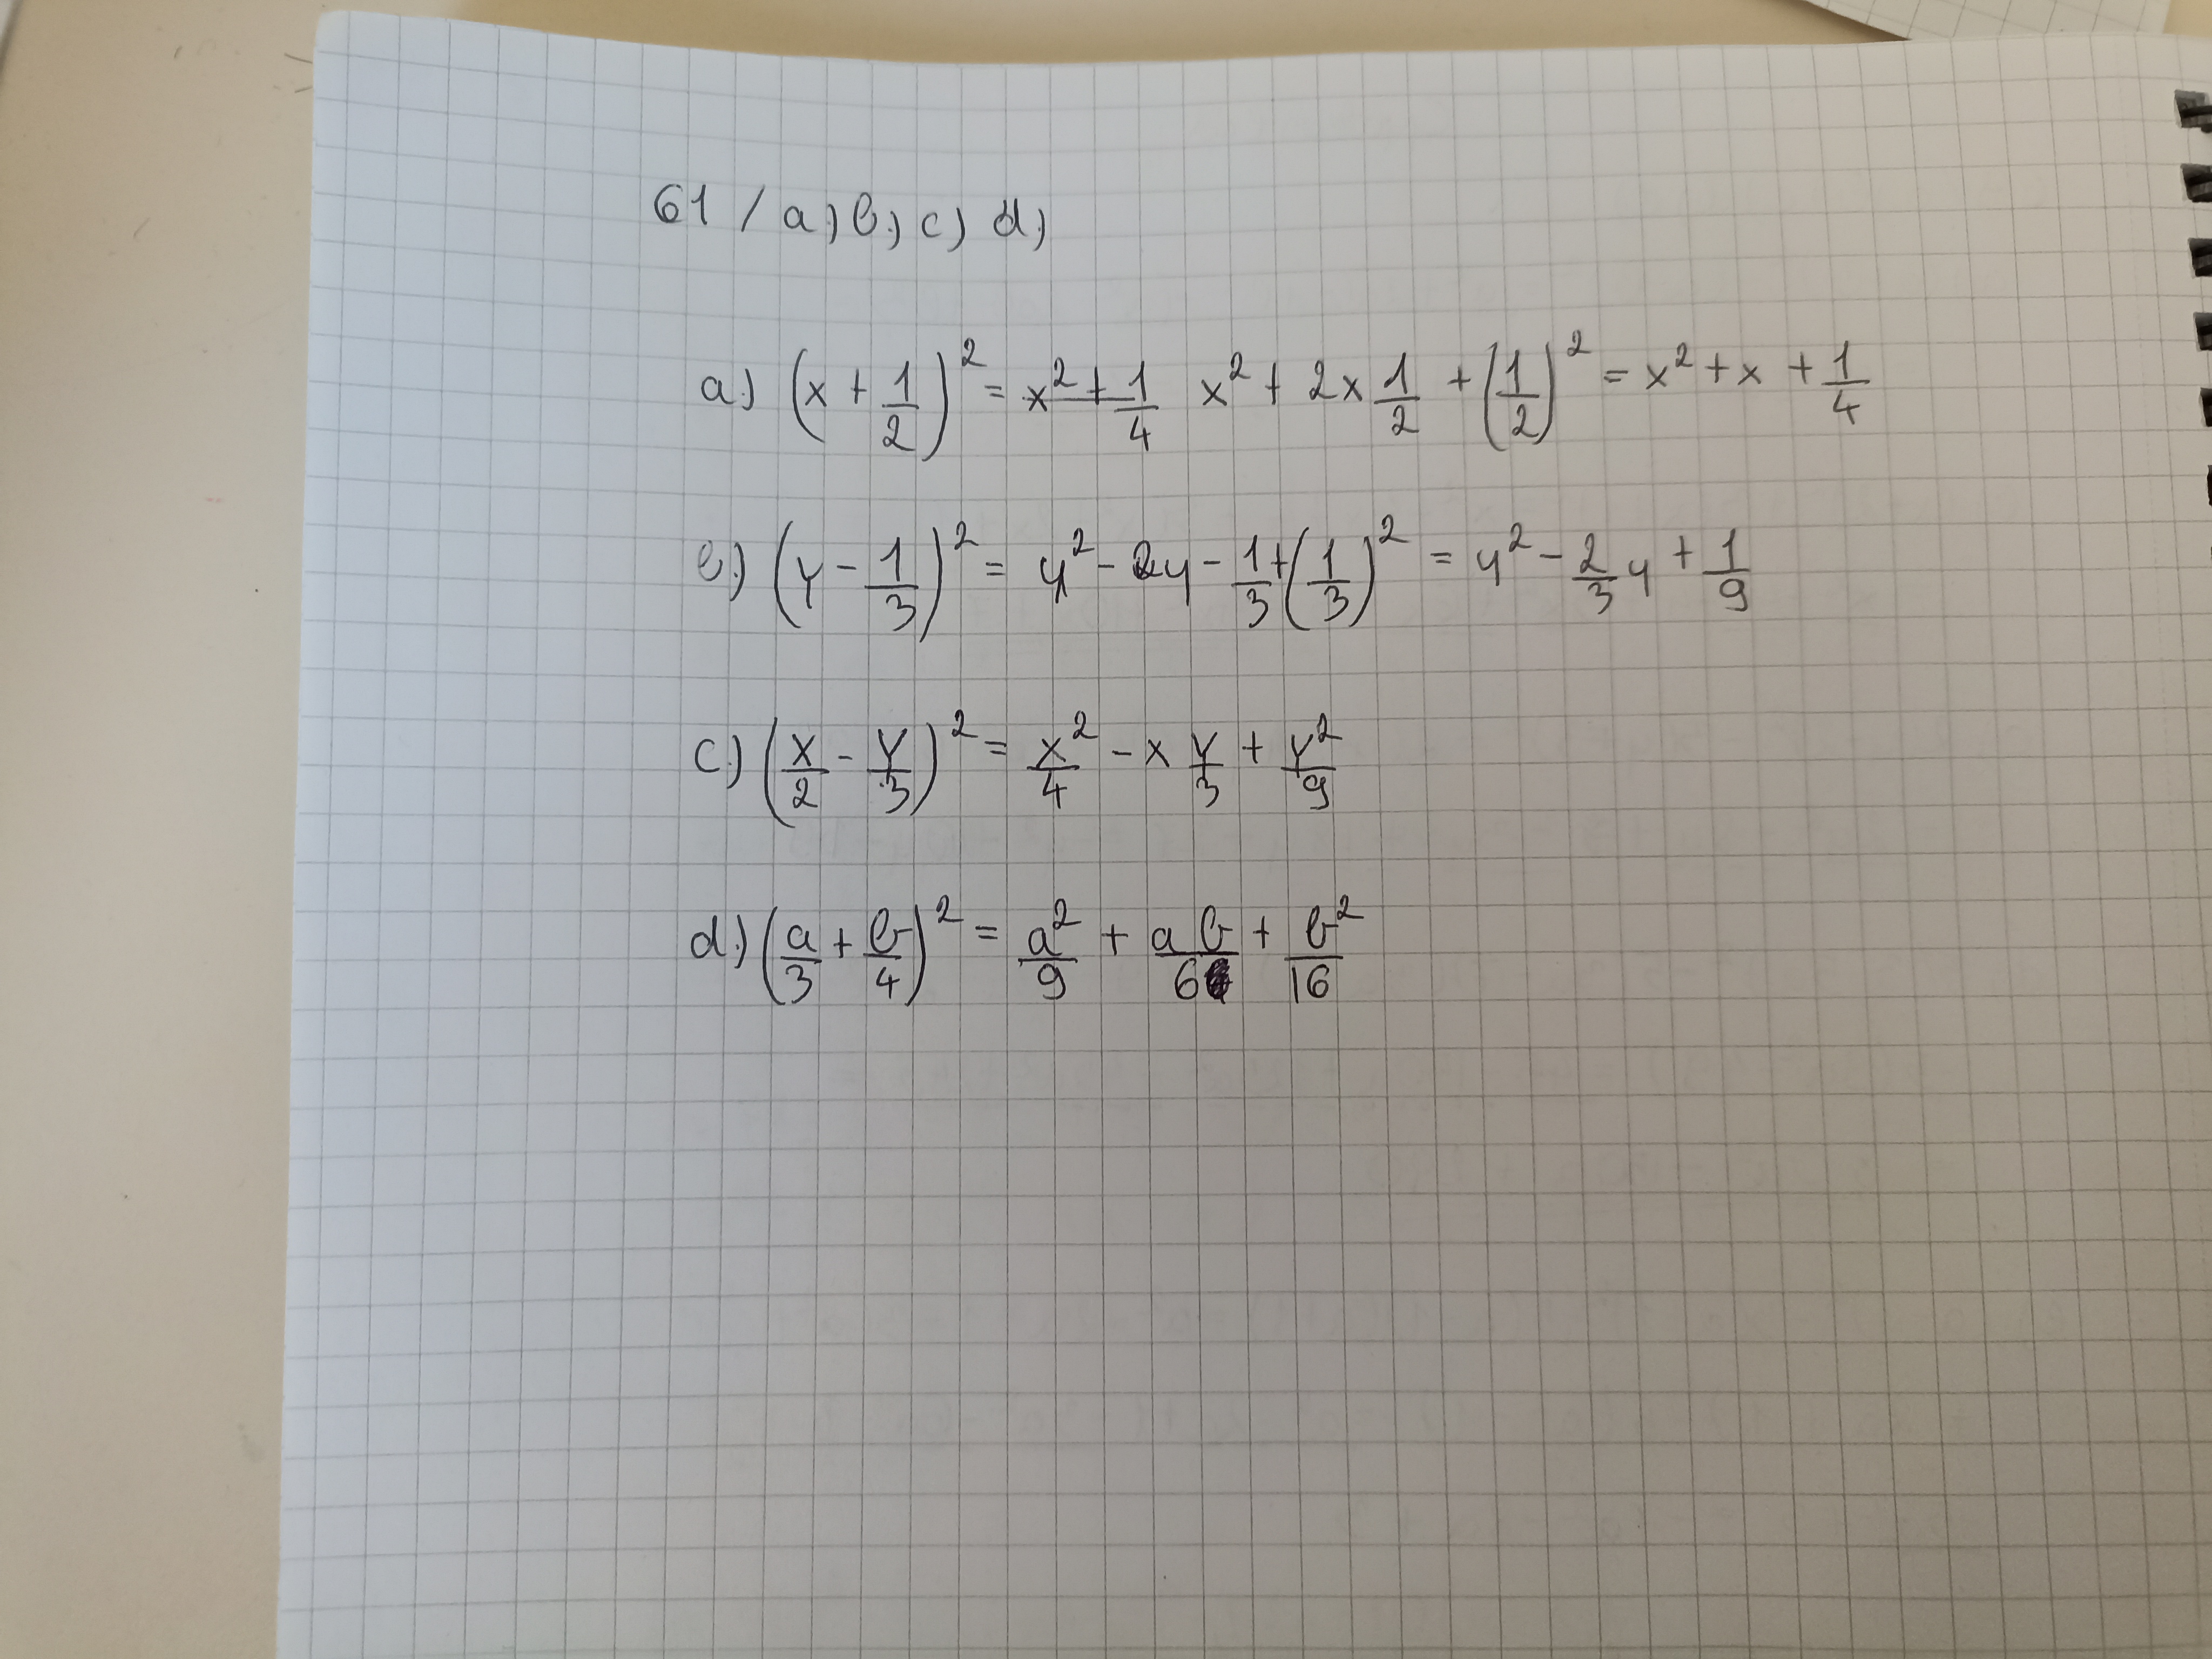 61 / a) b) c) d)
a.) (x + 1/2)² = ~~x² + 1/4~~ x² + 2x 1/2 + (1/2)² = x² + x + 1/4
b.) (y - 1/3)² = y² - 2y - 1/3 + (1/3)² = y² - 2/3 y + 1/9
c.) (x/2 - y/3)² = x²/4 - x y/3 + y²/9
d.) (a/3 + b/4)² = a²/9 + ab/6 + b²/16